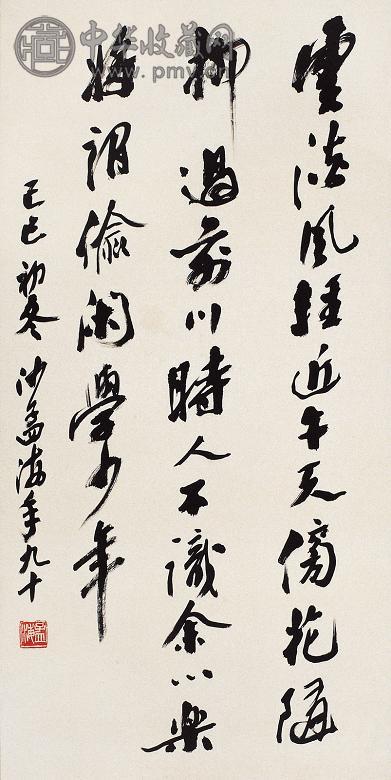 雲淡風輕近午天傍花隨
柳過前川時人不識余心樂
將謂偷閑學少年
己巳初冬沙孟海年九十
孟海
中华收藏网
www.pmv.cn